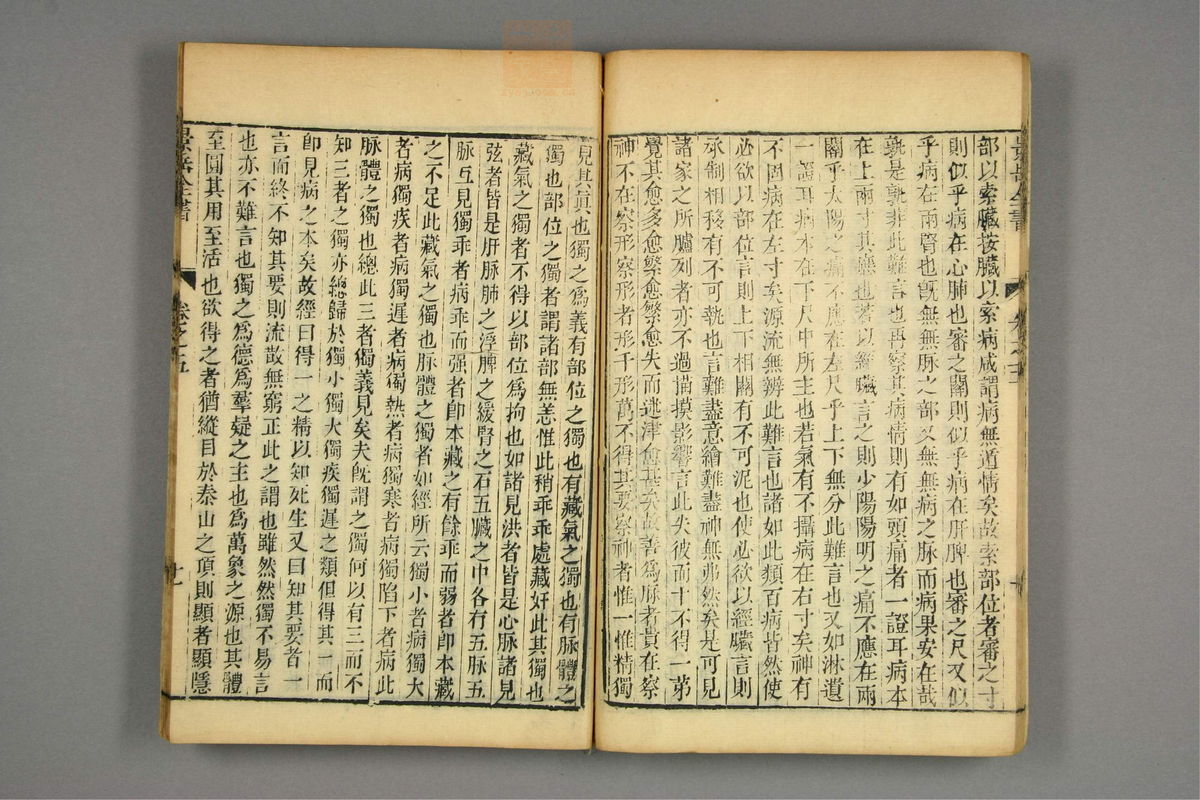 部以索臟按臟以索病咸謂病無遁情矣故索部位者審之寸
則似乎病在心肺也審之關則似乎病在肝脾也審之尺又似
乎病在兩腎也旣無無脈之部又無無病之脈而病果安在哉
孰是孰非此難言也再察其病情則有如頭痛者一證耳病本
在上兩寸其應也若以經臟言之則少陽陽明之痛不應在兩
關乎太陽之痛不應在左尺乎上下無分此難言也又如淋遺
一證耳病本在下尺中所主也若氣有不攝病在右寸矣神有
不固病在左寸矣源流無辨此難言也諸如此類百病皆然使
必欲以部位言則上下相關有不可泥也使必欲以經臟言則
承制相移有不可執也言難盡意繪難盡神無弗然矣是可見
諸家之所臚列者亦不過描摸影響言此失彼而十不得一第
覺其愈多愈繁愈繁愈失而迷津愈甚矣故善爲脈者貴在察
神不在察形察形者形千形萬不得其要察神者惟一惟精獨
見其眞也獨之爲義有部位之獨也有藏氣之獨也有脈體之
獨也部位之獨者謂諸部無恙惟此稍乖乖處藏奸此其獨也
藏氣之獨者不得以部位爲拘也如諸見洪者皆是心脈諸見
弦者皆是肝脈肺之浮脾之緩腎之石五臟之中各有五脈五
脈互見獨乖者病乖而强者卽本藏之有餘乖而弱者卽本藏
之不足此藏氣之獨也脈體之獨者如經所云獨小者病獨大
者病獨疾者病獨遲者病獨熱者病獨寒者病獨陷下者病此
脈體之獨也總此三者獨義見矣夫旣謂之獨何以有三而不
知三者之獨亦總歸於獨小獨大獨疾獨遲之類但得其一而
卽見病之本矣故經曰得一之精以知死生又曰知其要者一
言而終不知其要則流散無窮正此之謂也雖然然獨不易言
也亦不難言也獨之爲德爲羣疑之主也爲萬象之源也其體
至圓其用至活也欲得之者猶縱目於泰山之頂則顯者顯隱
景岳全書
卷之五